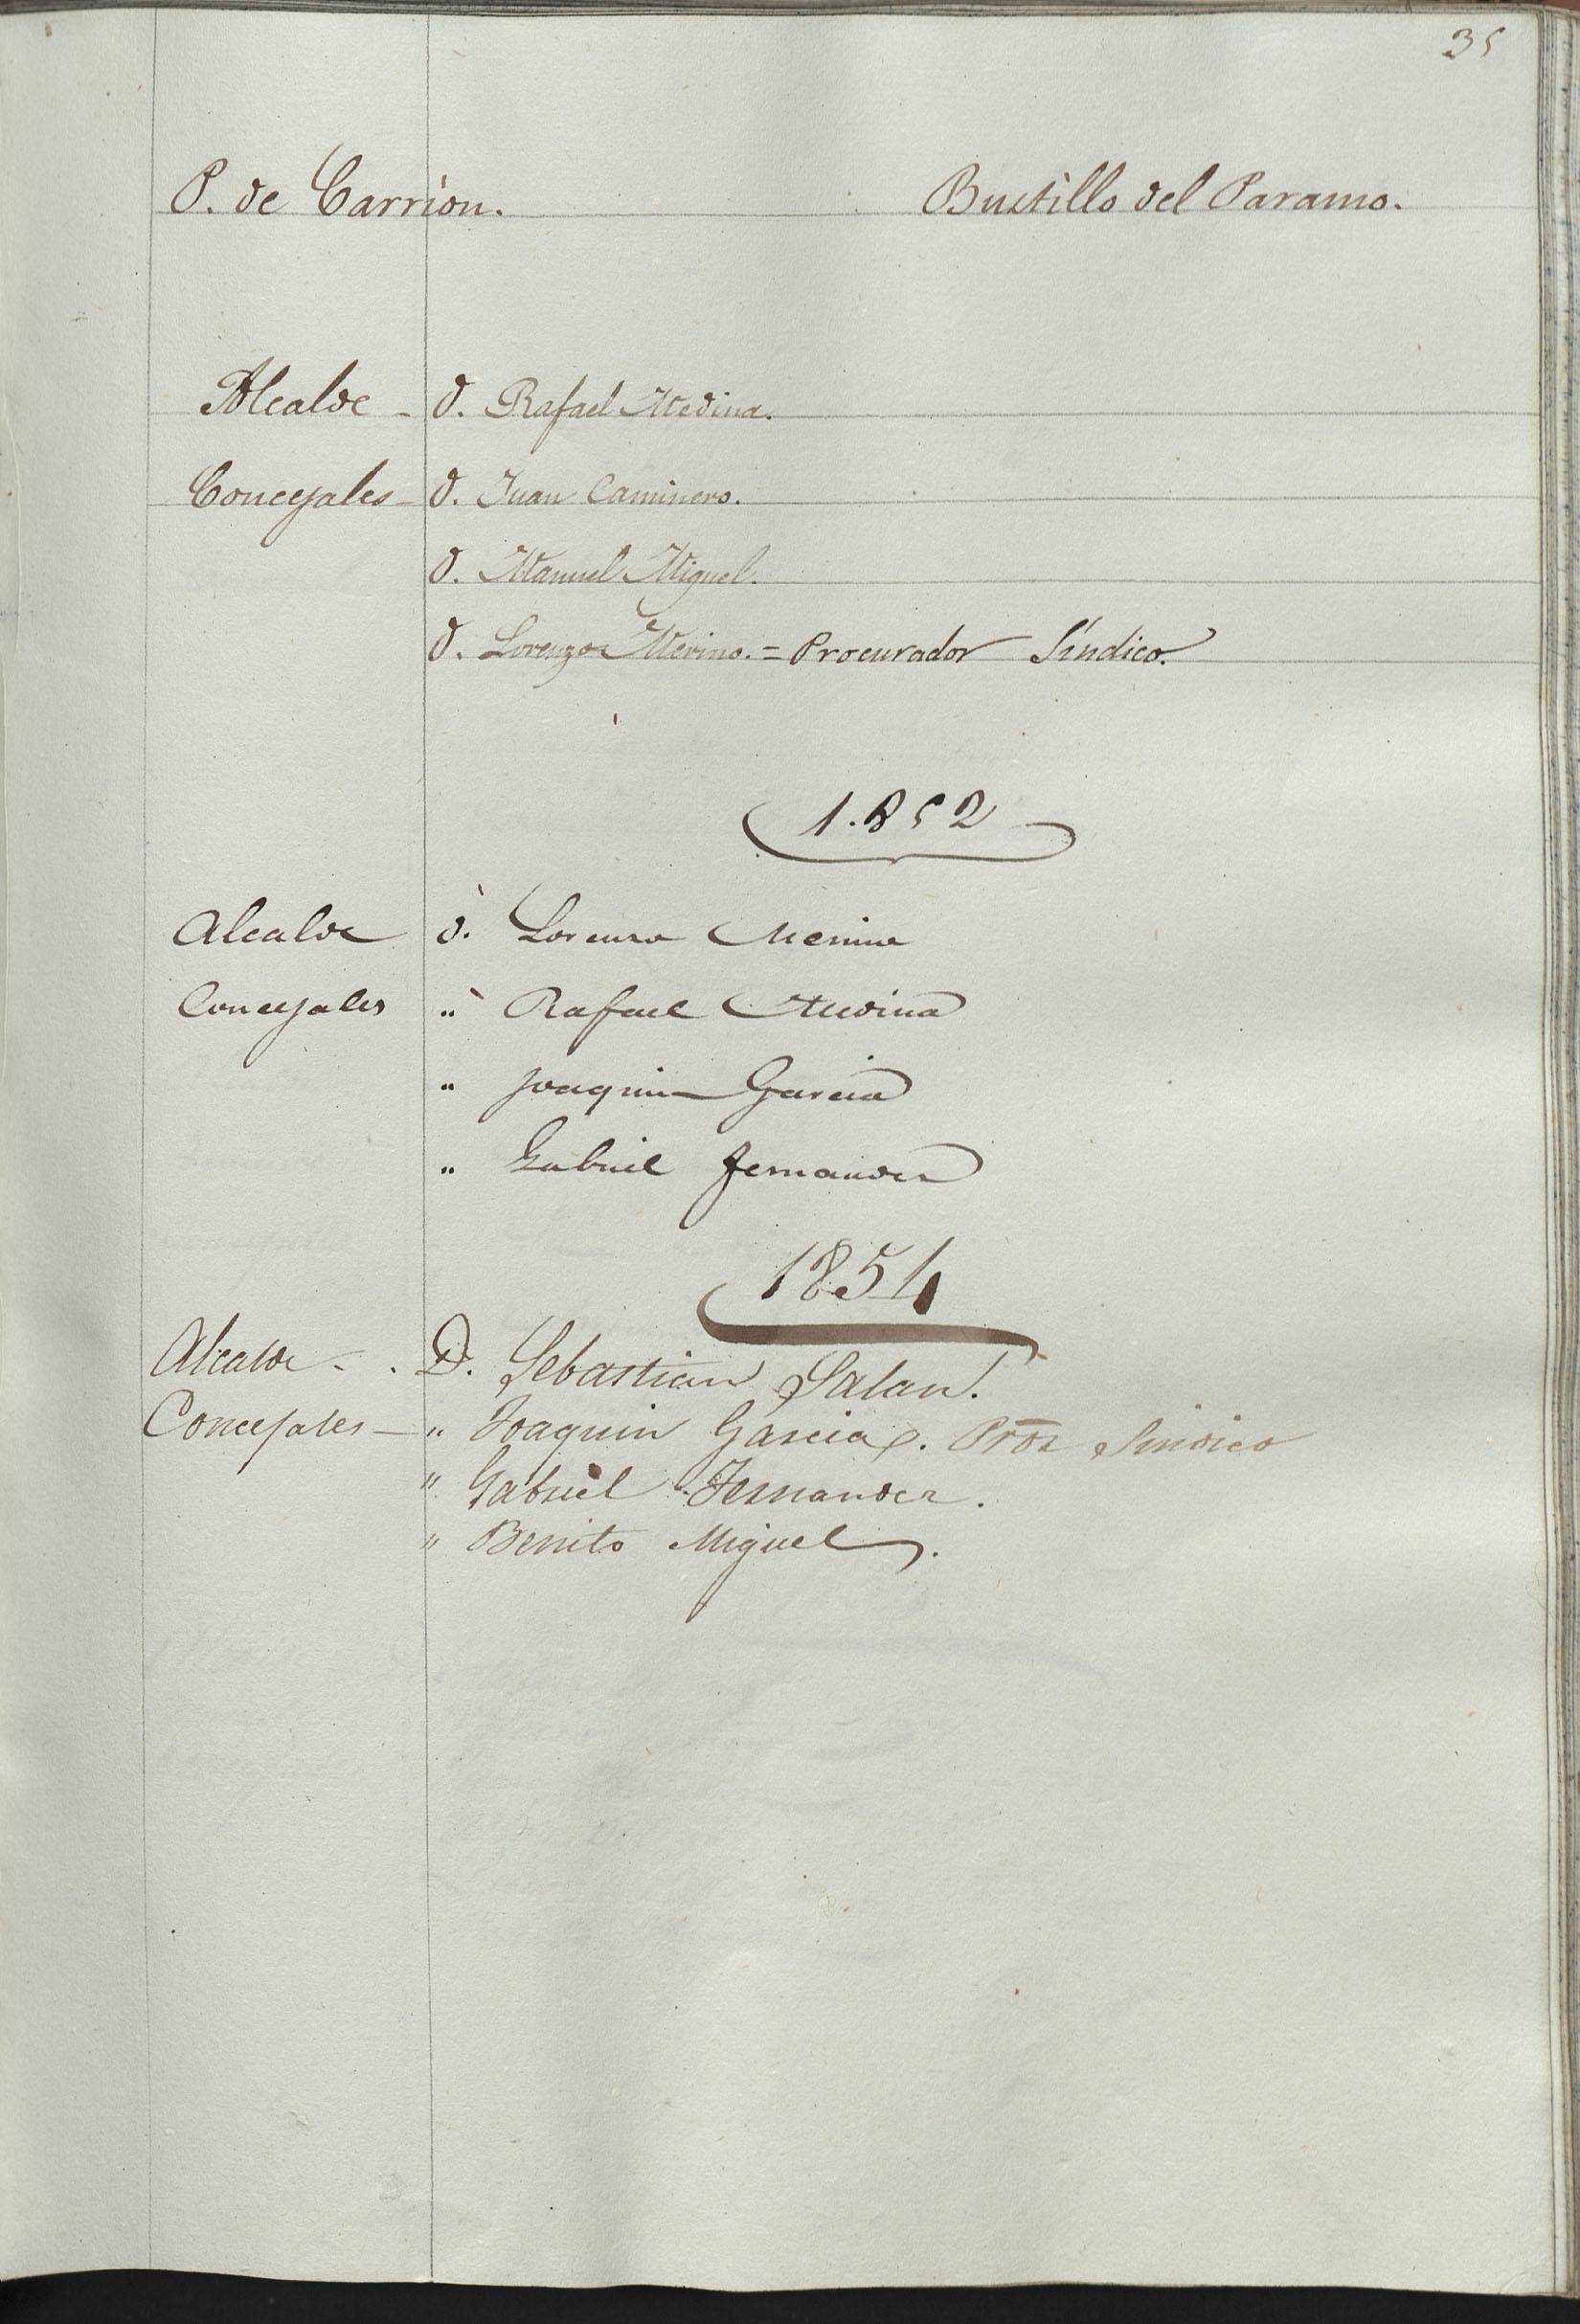 35
P. de Carrion. Bustillo del Paramo.
Alcalde - D. Rafael Medina.
Concejales - D. Juan Caminero.
D. Manuel Miguel.
D. Lorenzo Merino. = Procurador Síndico.
1.852
Alcalde D. Lorenzo Merino
Concejales " Rafael Medina
" Joaquin Garcia
" Gabriel Fernandez
1854
Alcalde - . D. Sebastian Salan.
Concejales - " Joaquin Garcia. Pror Sindico
" Gabriel Fernandez.
" Benito Miguel.